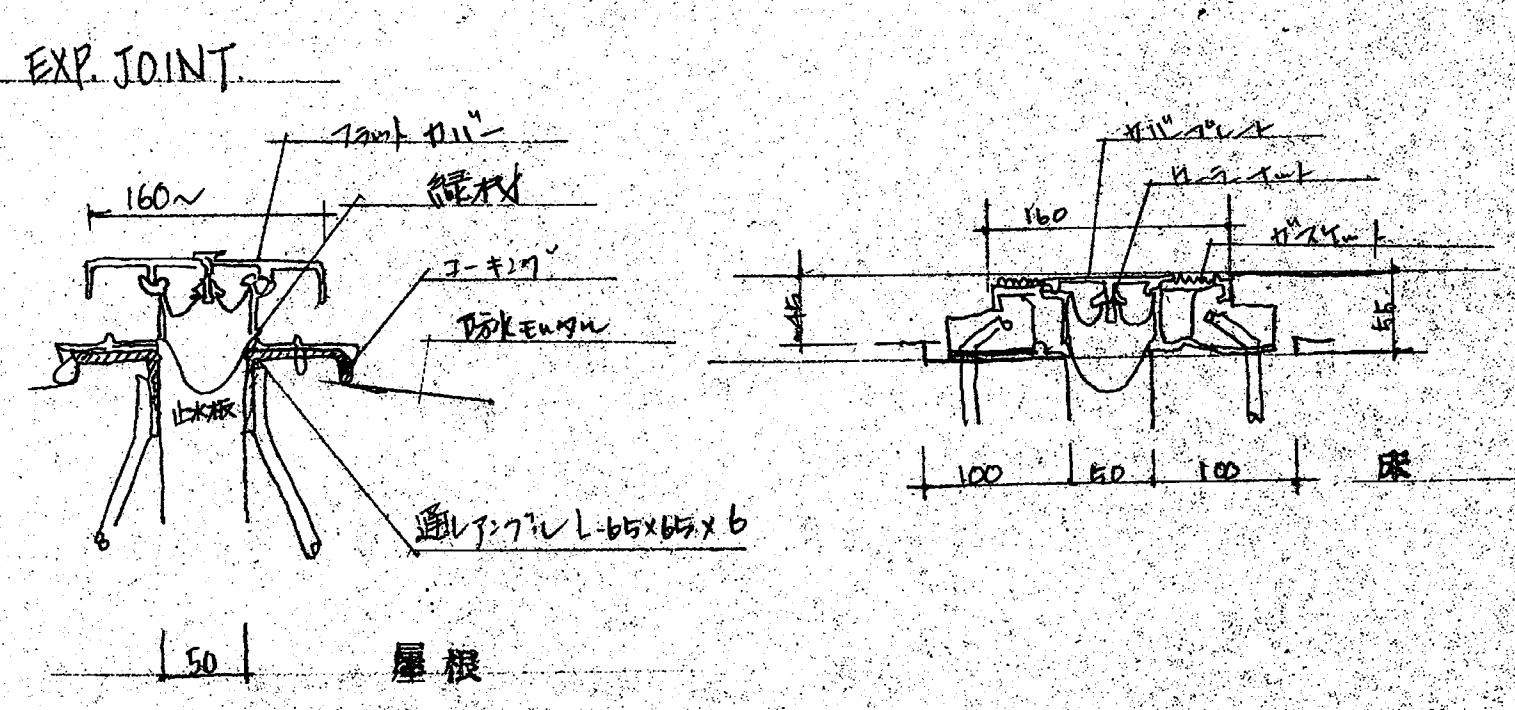 EXP. JOINT.
フラットカバー
160~
縁材
コーキング
防水モルタル
止水板
通しアングル L-65×65×6
50
屋根
カバープレート
160
ガスケット
45
55
100
50
100
床